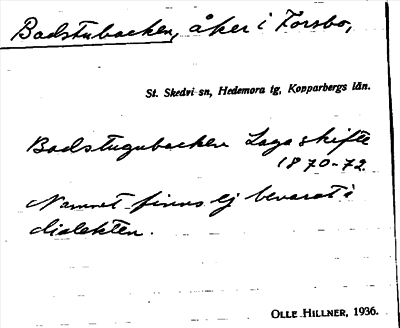 Badstubacken, åker i Forsbo,
St. Skedvi sn, Hedemora tg, Kopparbergs län.
Badstugubacken Laga skifte
1870-72.
Namnet finns ej bevarat i
dialekten.
OLLE HILLNER, 1936.